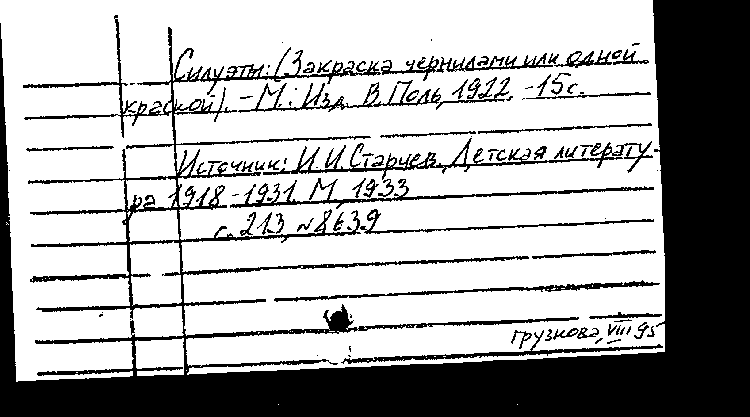 Силуэты: (Закраска чернилами или одной
краской). - М.: Изд. В. Поль, 1922. - 15с.
Источник: И.И. Старцев. Детская литерату-
ра 1918-1931. М., 1933
с. 213, №8639
Грузнова, VIII 95